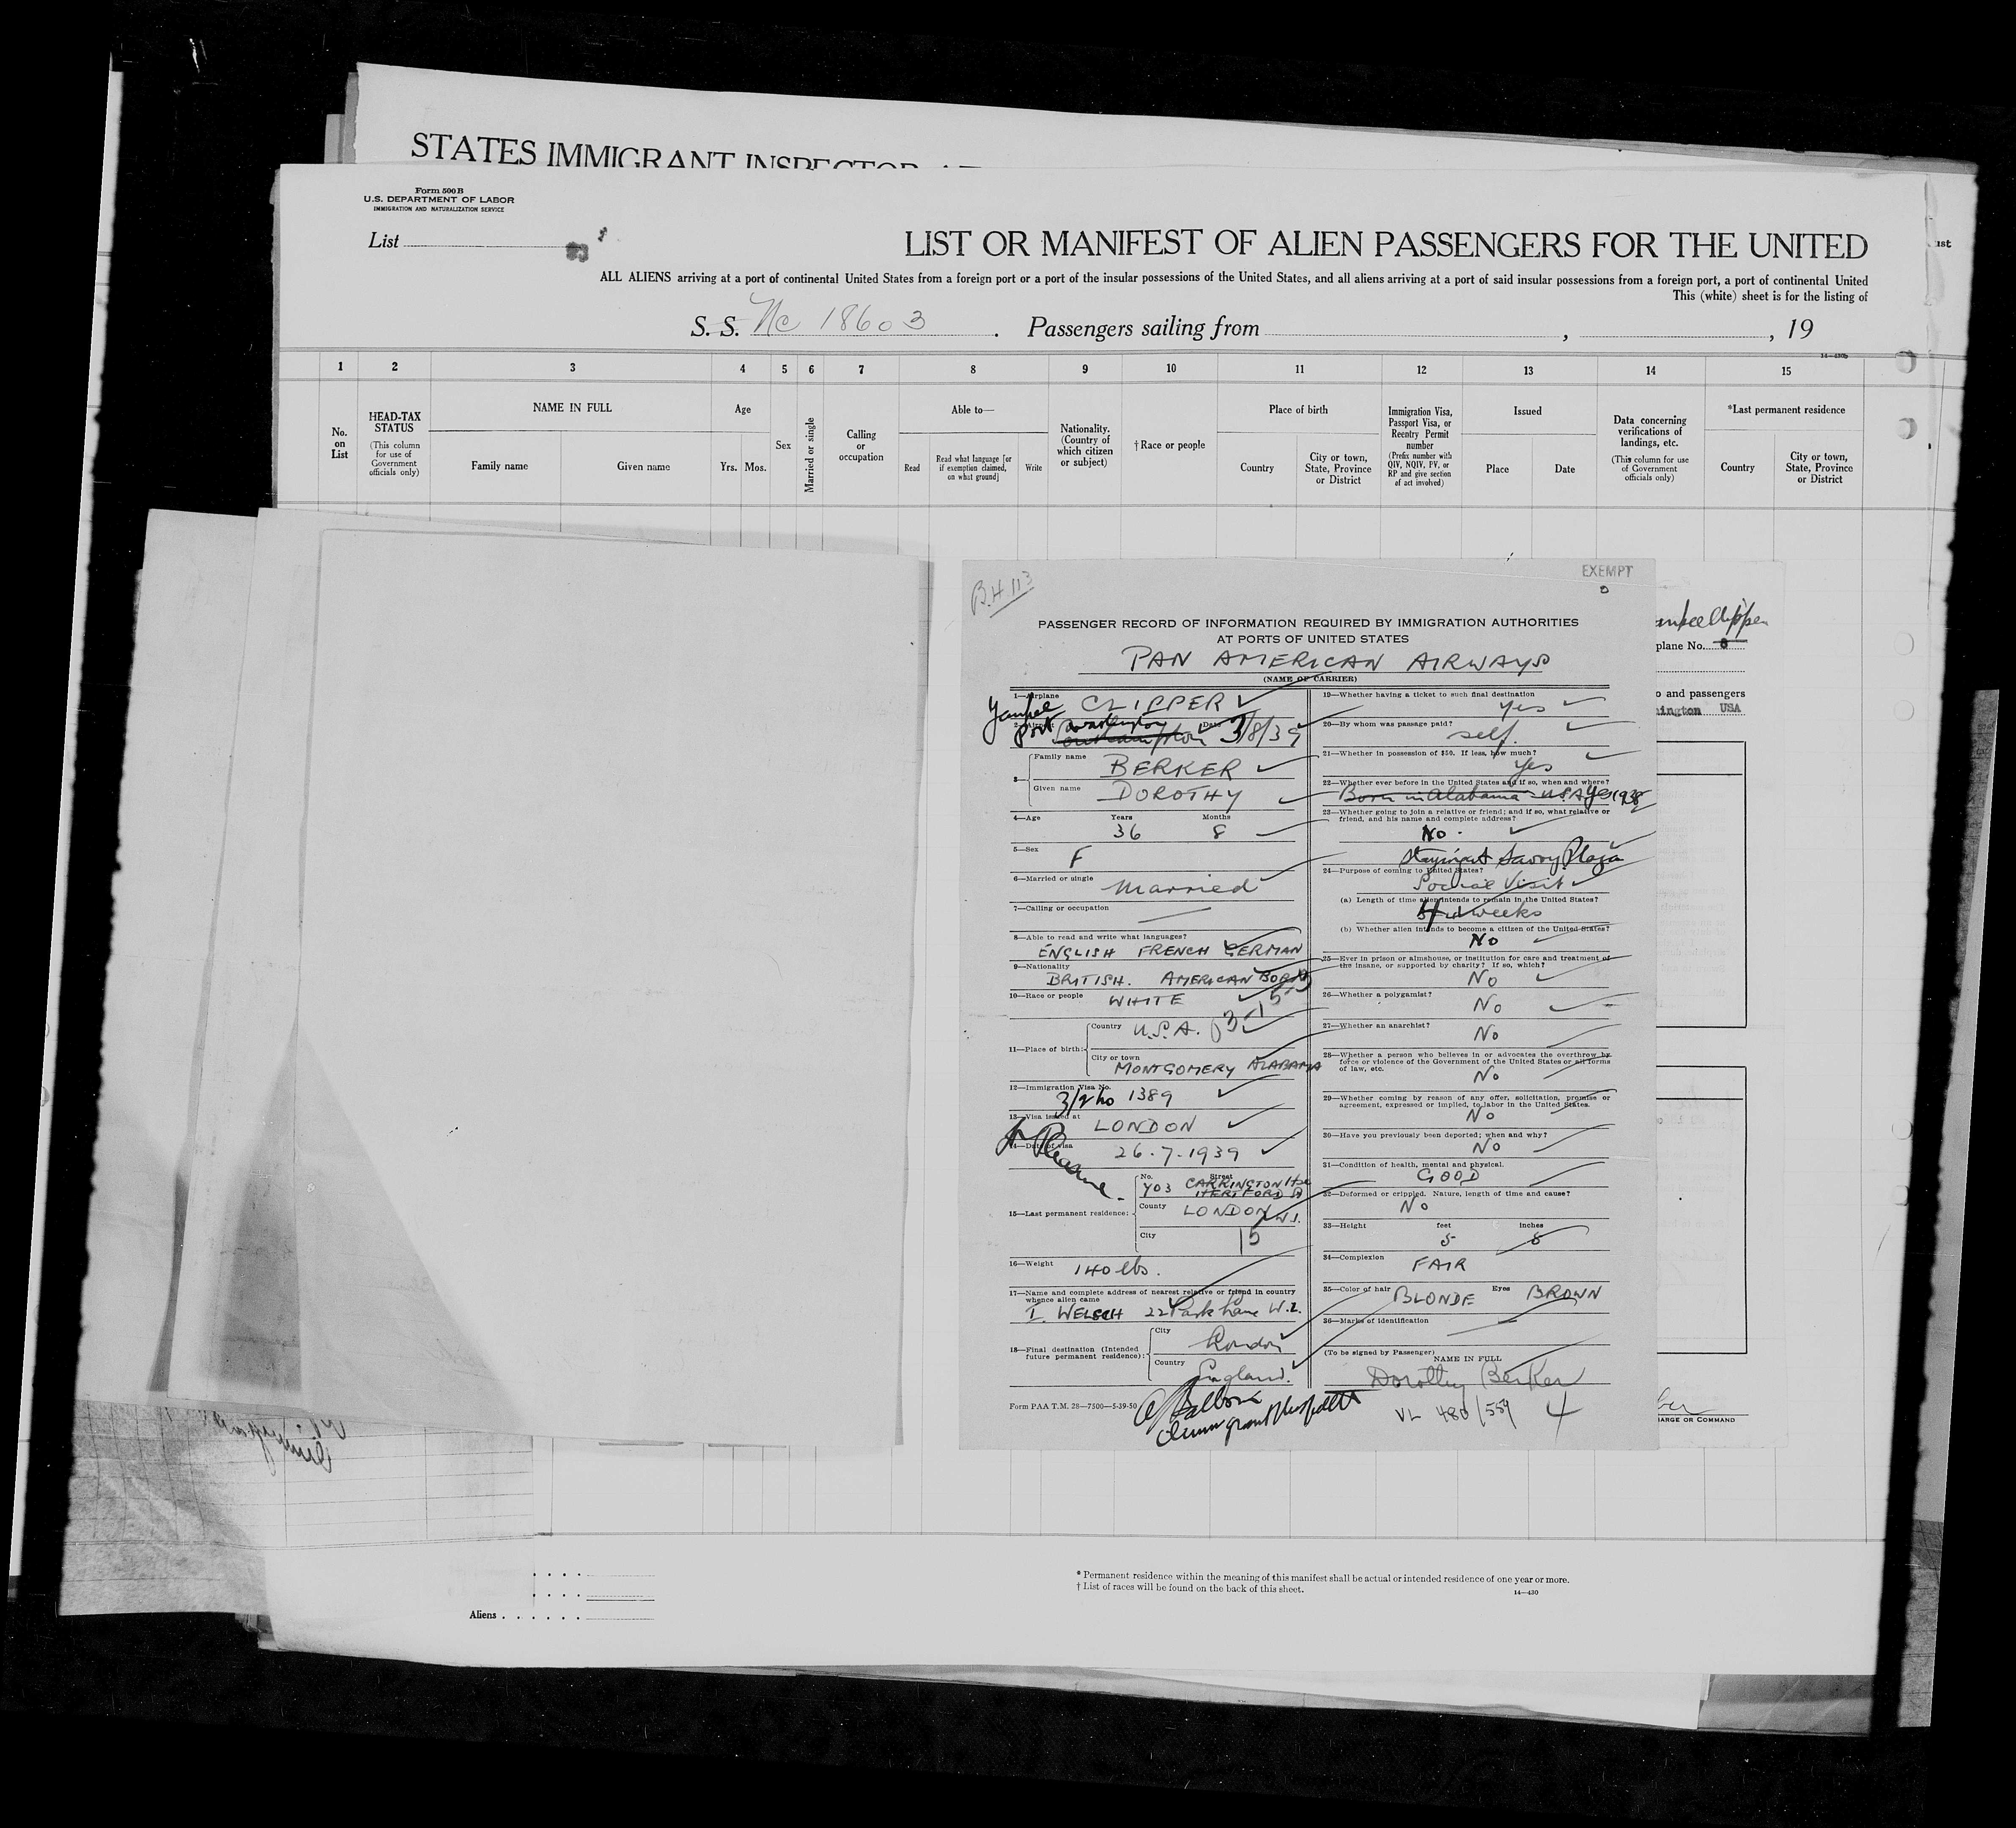 STATES IMMIGRANT INSPECTOR AT
Form 500 B
U.S. DEPARTMENT OF LABOR
IMMIGRATION AND NATURALIZATION SERVICE
List
LIST OR MANIFEST OF ALIEN PASSENGERS FOR THE UNITED
ALL ALIENS arriving at a port of continental United States from a foreign port or a port of the insular possessions of the United States, and all aliens arriving at a port of said insular possessions from a foreign port, a port of continental United
This (white) sheet is for the listing of
S. S. Nc 18603. Passengers sailing from , , 19
14—430b
1 2 3 4 5 6 7 8 9 10 11 12 13 14 15
No. on List
HEAD-TAX STATUS
(This column for use of Government officials only)
NAME IN FULL
Family name
Given name
Age
Yrs. Mos.
Sex
Married or single
Calling or occupation
Able to—
Read
Read what language [or if exemption claimed, on what ground]
Write
Nationality. (Country of which citizen or subject)
†Race or people
Place of birth
Country
City or town, State, Province or District
Immigration Visa, Passport Visa, or Reentry Permit number
(Prefix number with QIV, NQIV, PV, or RP and give section of act involved)
Issued
Place
Date
Data concerning verifications of landings, etc.
(This column for use of Government officials only)
*Last permanent residence
Country
City or town, State, Province or District
B.H. 113
EXEMPT
PASSENGER RECORD OF INFORMATION REQUIRED BY IMMIGRATION AUTHORITIES
AT PORTS OF UNITED STATES
PAN AMERICAN AIRWAYS
(NAME OF CARRIER)
1—Airplane Yankee CLIPPER
Port Washington Southampton Date 3/8/39
3— Family name BERKER
Given name DOROTHY
4—Age Years 36 Months 8
5—Sex F
6—Married or single Married
7—Calling or occupation —
8—Able to read and write what languages?
ENGLISH FRENCH GERMAN
9—Nationality
BRITISH. AMERICAN BORN
10—Race or people WHITE
11—Place of birth: Country U.S.A.
City or town
MONTGOMERY ALABAMA
12—Immigration Visa No.
3/2 ho 1389
13—Visa issued at LONDON
14—Date of visa 26.7.1939
Pleasure
15—Last permanent residence: No. Street
403 CARRINGTON Hse
HERTFORD St
County LONDON W.1.
City 15
16—Weight 140 lbs.
17—Name and complete address of nearest relative or friend in country
whence alien came
I. WELSCH 22 Park Lane W.1.
18—Final destination (Intended future permanent residence): City London
Country England.
Form PAA T.M. 28—7500—5-39-50
19—Whether having a ticket to such final destination
Yes
20—By whom was passage paid?
self.
21—Whether in possession of $50. If less, how much?
Yes
22—Whether ever before in the United States and if so, when and where?
Born in Alabama U.S.A Yes 1938
23—Whether going to join a relative or friend; and if so, what relative or
friend, and his name and complete address?
No.
Staying at Savoy Plaza
24—Purpose of coming to United States?
Social Visit
(a) Length of time alien intends to remain in the United States?
4 weeks
(b) Whether alien intends to become a citizen of the United States?
No
25—Ever in prison or almshouse, or institution for care and treatment of
the insane, or supported by charity? If so, which?
No
26—Whether a polygamist?
No
27—Whether an anarchist?
No
28—Whether a person who believes in or advocates the overthrow by
force or violence of the Government of the United States or all forms
of law, etc.
No
29—Whether coming by reason of any offer, solicitation, promise or
agreement, expressed or implied, to labor in the United States.
No
30—Have you previously been deported; when and why?
No
31—Condition of health, mental and physical.
GOOD
32—Deformed or crippled. Nature, length of time and cause?
No
33—Height feet 5 inches 8
34—Complexion FAIR
35—Color of hair BLONDE Eyes BROWN
36—Marks of identification
(To be signed by Passenger)
NAME IN FULL
Dorothy Berker
VL 480/559 4
plane No.
o and passengers
ington USA
HARGE OR COMMAND
Aliens
* Permanent residence within the meaning of this manifest shall be actual or intended residence of one year or more.
† List of races will be found on the back of this sheet.
14—430